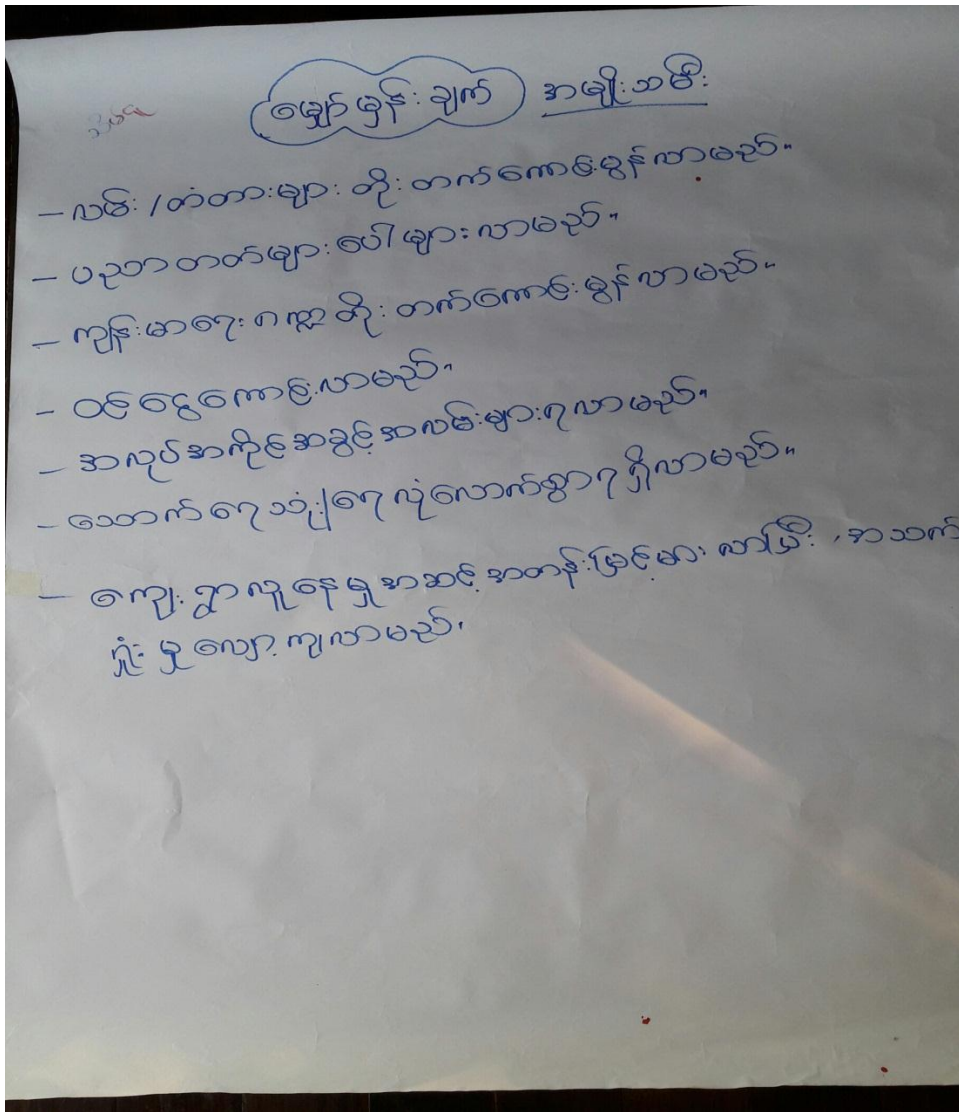 မျှော်မှန်းချက် အမျိုးသမီး
- လမ်း/တံတားများ တိုးတက်ကောင်းမွန်လာမည်။
- ပညာတတ်များပေါများလာမည်။
- ကျန်းမာရေးကဏ္ဍတိုးတက်ကောင်းမွန်လာမည်။
- ဝင်ငွေကောင်းလာမည်။
- အလုပ်အကိုင်အခွင့်အလမ်းများရလာမည်။
- သောက်ရေသုံးရေလုံလောက်စွာရရှိလာမည်။
- ကျေးရွာလူနေမှုအဆင့်အတန်းမြင့်မားလာပြီး၊ အသက်
ရှုံးမှုလျော့ကျလာမည်။